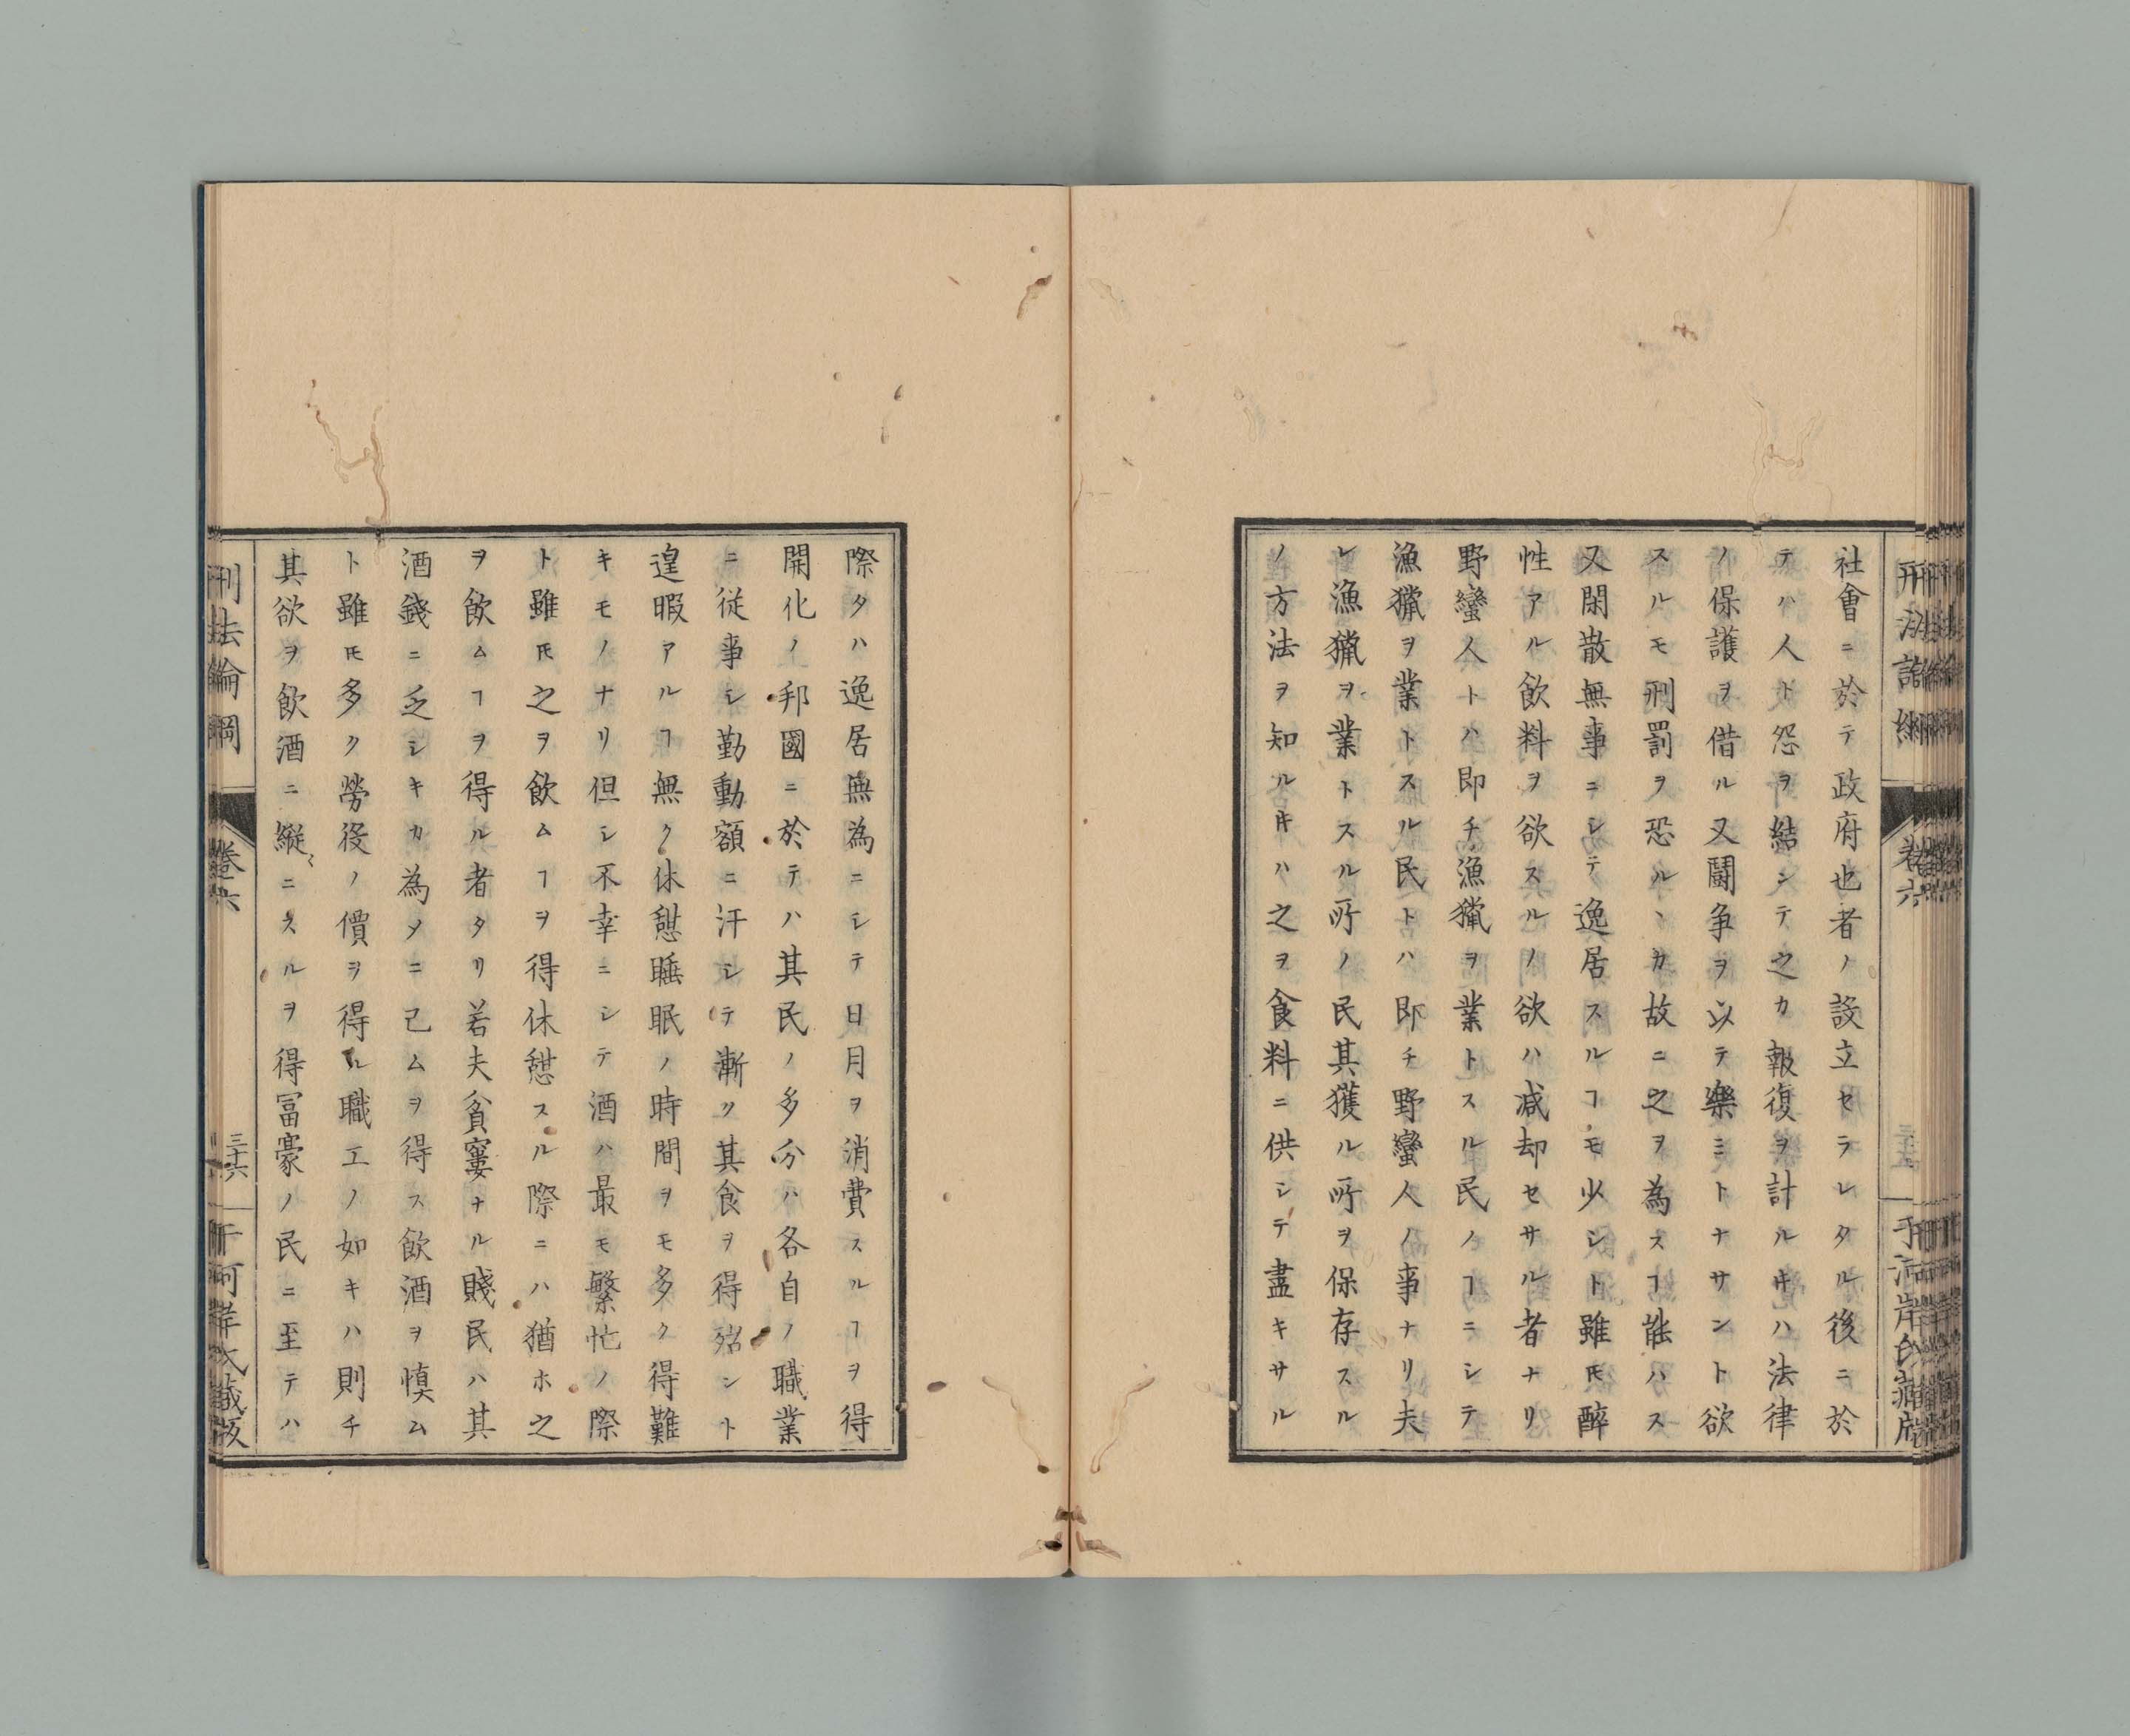 社會ニ於テ政府也者ノ設立セラレタル後ニ於
テハ人ト怨ヲ結ンテ之カ報復ヲ計ルキハ法律
ノ保護ヲ借ル又鬪争ヲ以テ樂ミトナサント欲
スルモ刑罰ヲ恐ルヽカ故ニ之ヲ為スヿ能ハス
又閑散無事ニシテ逸居スルヿモ少シト雖𪜈醉
性アル飲料ヲ欲スルノ欲ハ减却セサル者ナリ
野蠻人トハ即チ漁獵ヲ業トスル民ノヿニシテ
漁獵ヲ業トスル民トハ即チ野蠻人ノ事ナリ夫
レ漁獵ヲ業トスル所ノ民其獲ル所ヲ保存スル
ノ方法ヲ知ルキハ之ヲ食料ニ供シテ盡キサル
際タハ逸居無為ニシテ日月ヲ消費スルヿヲ得
開化ノ邦國ニ於テハ其民ノ多分ハ各自ノ職業
ニ従事シ勤動額ニ汗シテ漸ク其食ヲ得殆ント
遑暇アルヿ無ク休憇睡眠ノ時間ヲモ多ク得難
キモノナリ但シ不幸ニシテ酒ハ最モ繁忙ノ際
ト雖𪜈之ヲ飲ムヿヲ得休憇スル際ニハ猶ホ之
ヲ飲ムヿヲ得ル者タリ若夫貧窶ナル賤民ハ其
酒錢ニ乏シキカ為メニ已ムヲ得ス飲酒ヲ慎ム
ト雖𪜈多ク勞役ノ價ヲ得ル職工ノ如キハ則チ
其欲ヲ飲酒ニ縦ニスルヲ得冨豪ノ民ニ至テハ
刑法論綱
卷六
三十六